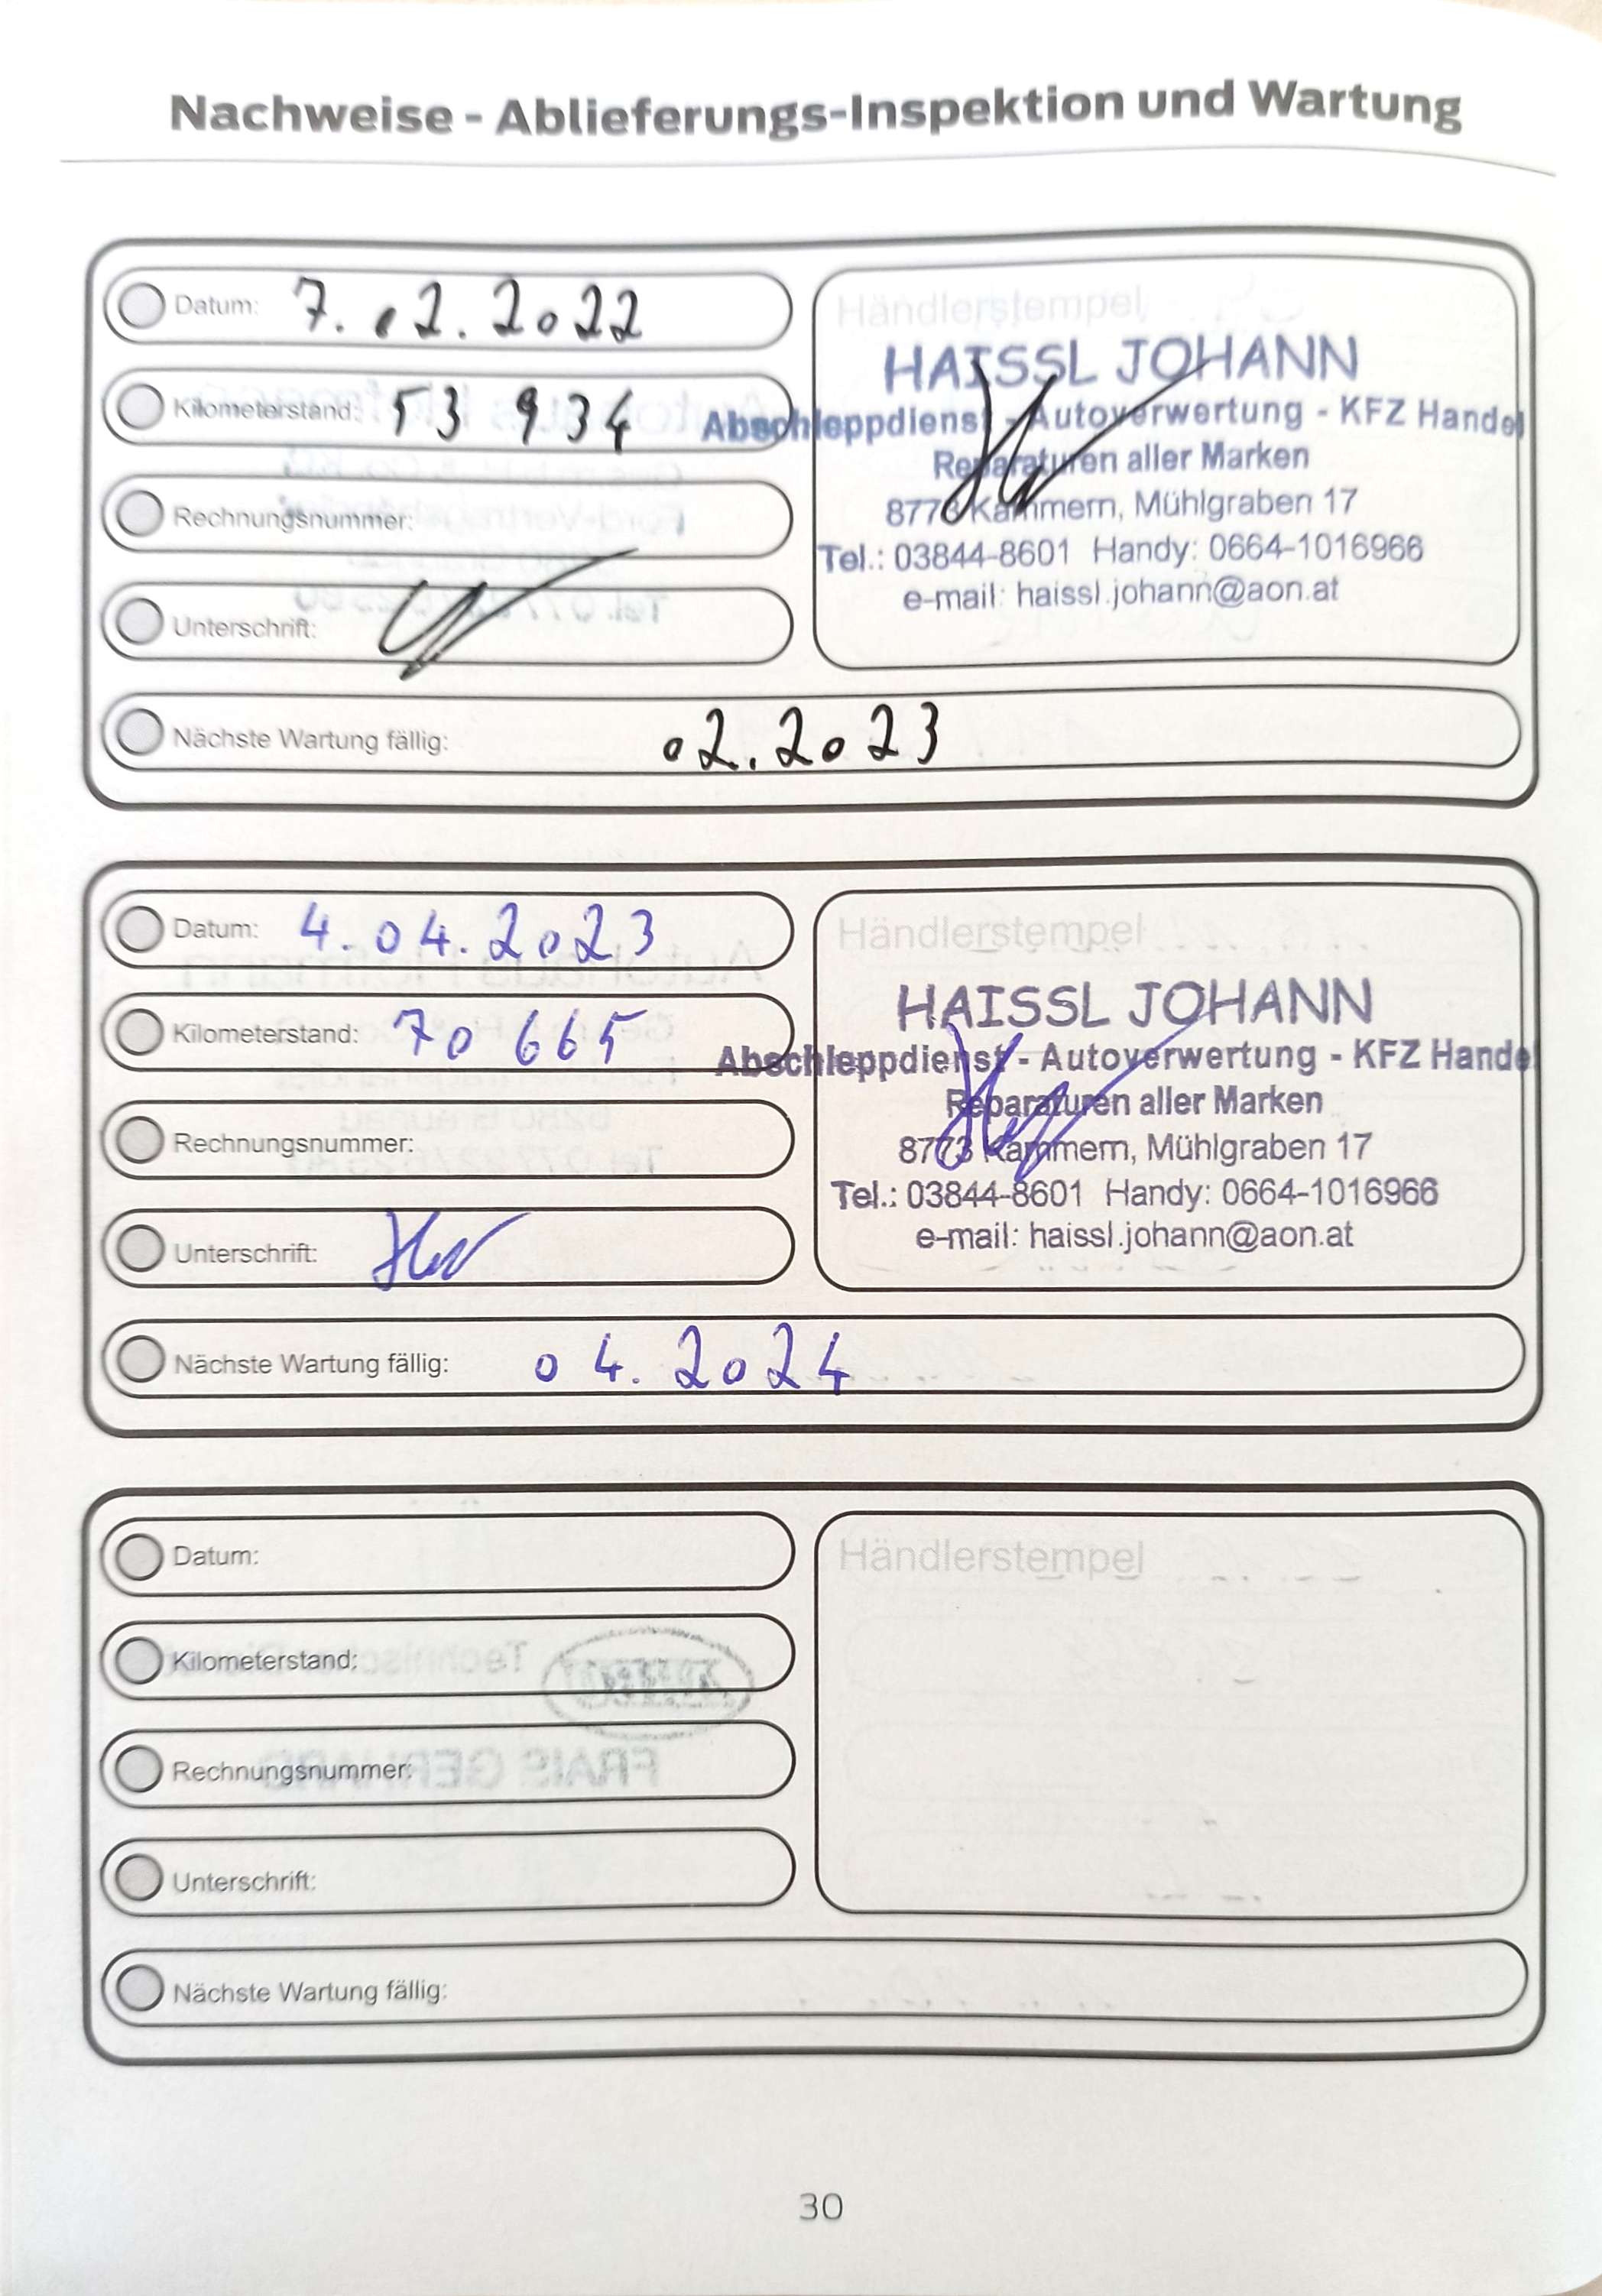 Nachweise - Ablieferungs-Inspektion und Wartung
Datum: 7.02.2022
Kilometerstand: 53 934
Rechnungsnummer:
Unterschrift:
Händlerstempel
HAISSL JOHANN
Abschleppdienst - Autoverwertung - KFZ Handel
Reparaturen aller Marken
8773 Kammern, Mühlgraben 17
Tel.: 03844-8601 Handy: 0664-1016966
e-mail: haissl.johann@aon.at
Nächste Wartung fällig: 02.2023
Datum: 4.04.2023
Kilometerstand: 70 665
Rechnungsnummer:
Unterschrift:
Händlerstempel
HAISSL JOHANN
Abschleppdienst - Autoverwertung - KFZ Hande
Reparaturen aller Marken
8773 Kammern, Mühlgraben 17
Tel.: 03844-8601 Handy: 0664-1016966
e-mail: haissl.johann@aon.at
Nächste Wartung fällig: 04.2024
Datum:
Kilometerstand:
Rechnungsnummer:
Unterschrift:
Händlerstempel
Nächste Wartung fällig:
30